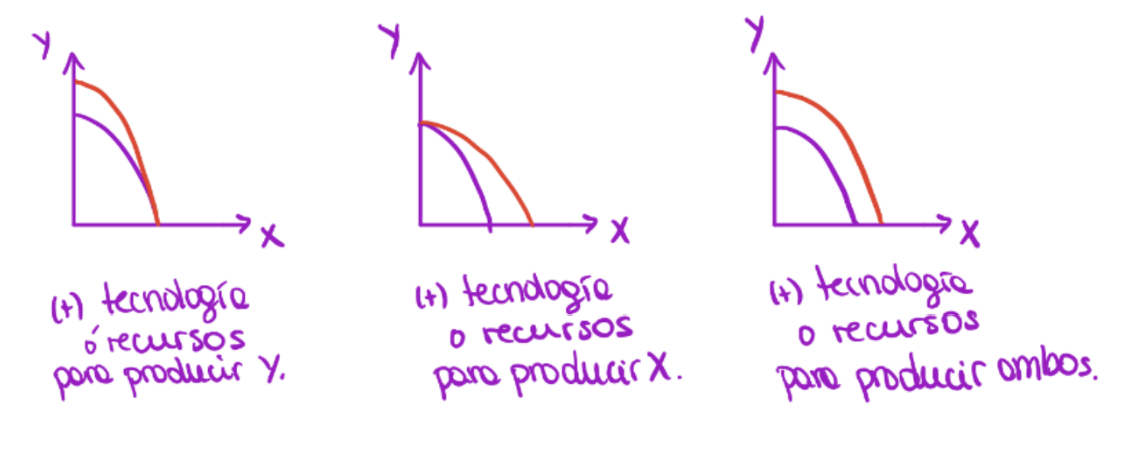 Y
X
(+) tecnología
ó recursos
para producir Y.
Y
X
(+) tecnología
o recursos
para producir X.
Y
X
(+) tecnología
o recursos
para producir ambos.